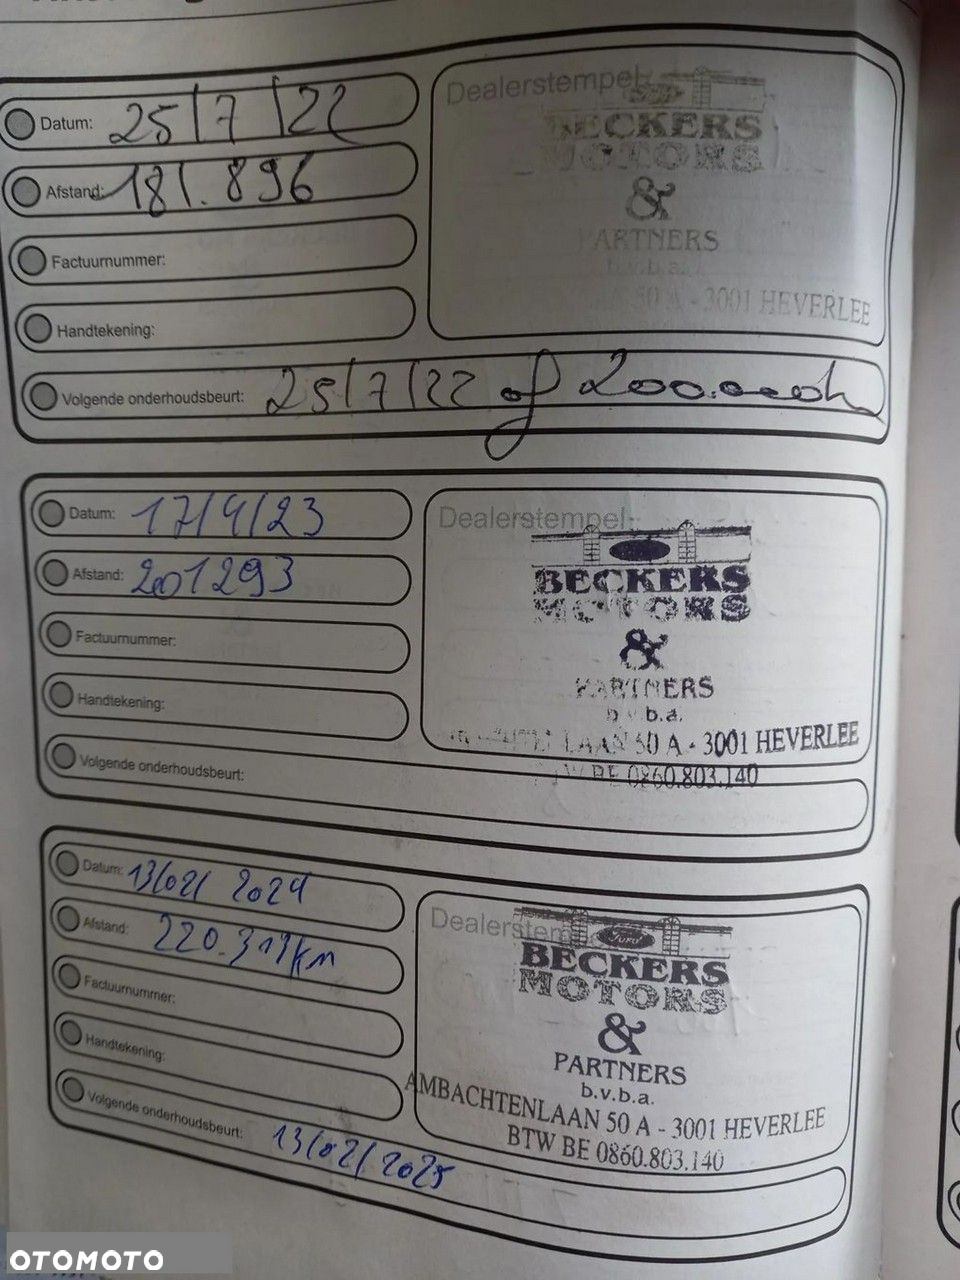 Datum: 25/7/22
Dealerstempel:
Afstand: 181.896
BECKERS
MOTORS
&
Factuurnummer:
PARTNERS
b.v.b.a.
50 A - 3001 HEVERLEE
Handtekening:
Volgende onderhoudsbeurt: 25/7/22 of 200.000
Datum: 17/4/23
Dealerstempel:
Afstand: 201293
BECKERS
MOTORS
&
Factuurnummer:
PARTNERS
b.v.b.a.
Handtekening:
LAAN 50 A - 3001 HEVERLEE
BTW BE 0860.803.140
Volgende onderhoudsbeurt:
Datum: 13/02/2024
Dealerstempel
Ford
Afstand: 220.319km
BECKERS
MOTORS
&
Factuurnummer:
PARTNERS
b.v.b.a.
Handtekening:
AMBACHTENLAAN 50 A - 3001 HEVERLEE
BTW BE 0860.803.140
Volgende onderhoudsbeurt: 13/02/2025
OTOMOTO